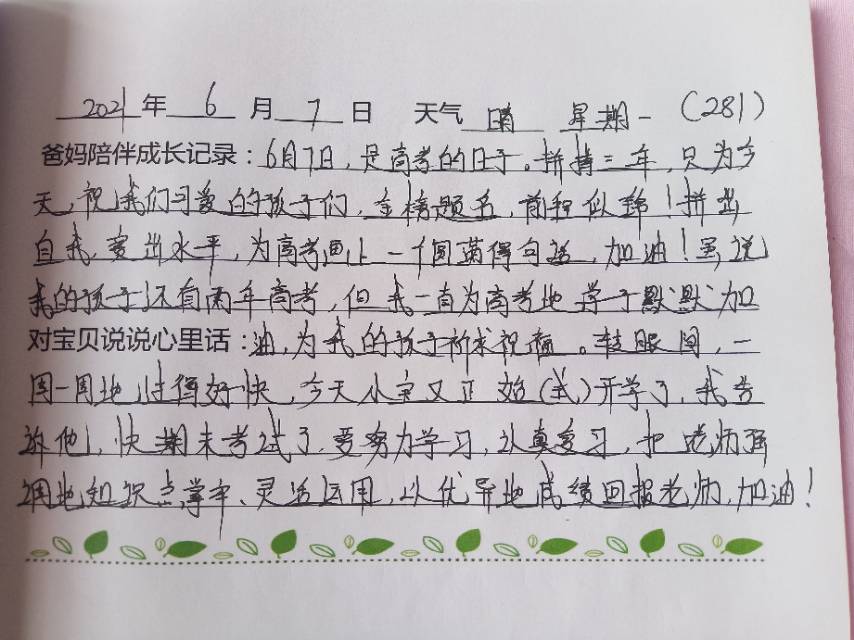 2021年6月7日 天气 晴 星期一 (281)
爸妈陪伴成长记录:6月7日,是高考的日子。拼搏三年,只为今
天,祝我们可爱的孩子们,金榜题名,前程似锦!拼出
自我,赛出水平,为高考画上一个圆满得句话,加油!虽说
我的孩子还有两年高考,但我一直为高考地学子默默加
对宝贝说说心里话:油,为我的孩子祈求祝福。转眼间,一
周一周地过得好快,今天小宝又正始(式)开学了,我告
诉他,快期末考试了,要努力学习,认真复习,把老师强
调地知识点掌牢、灵活运用,以优异地成绩回报老师,加油!